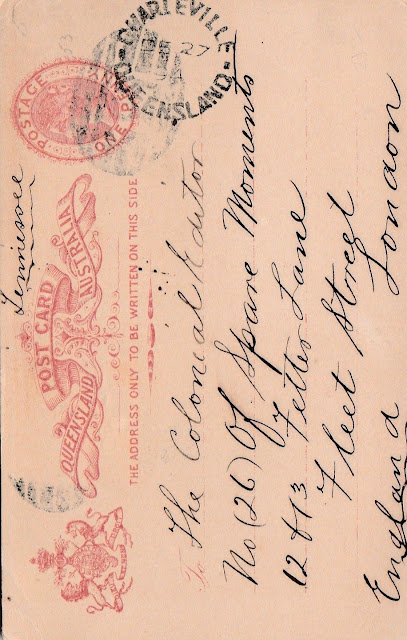 Tennessee
POSTAGE AND
ONE PENNY
CHARLEVILLE
27
QUEENSLAND
POST CARD
QUEENSLAND AUSTRALIA
THE ADDRESS ONLY TO BE WRITTEN ON THIS SIDE
To The Colonial Editor
No (26) Of Spare Moments
12 & 13 Fetter Lane
Fleet Street
London
England